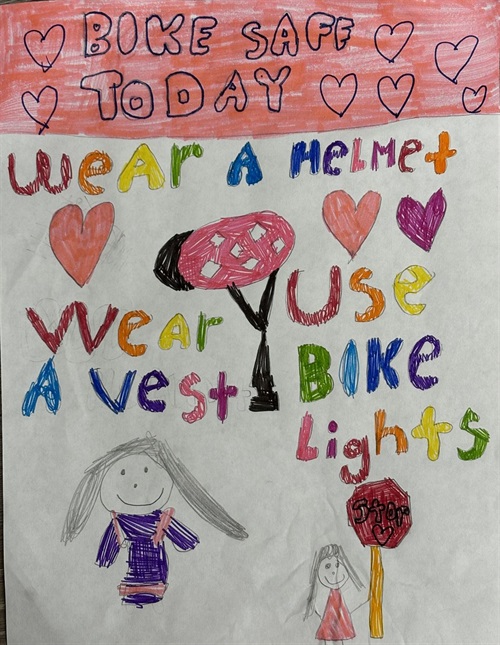 BIKE SAFE
TODAY
WeAr A HeLMet
USe
WeAr
BIKe
A Vest
LightS
StOP